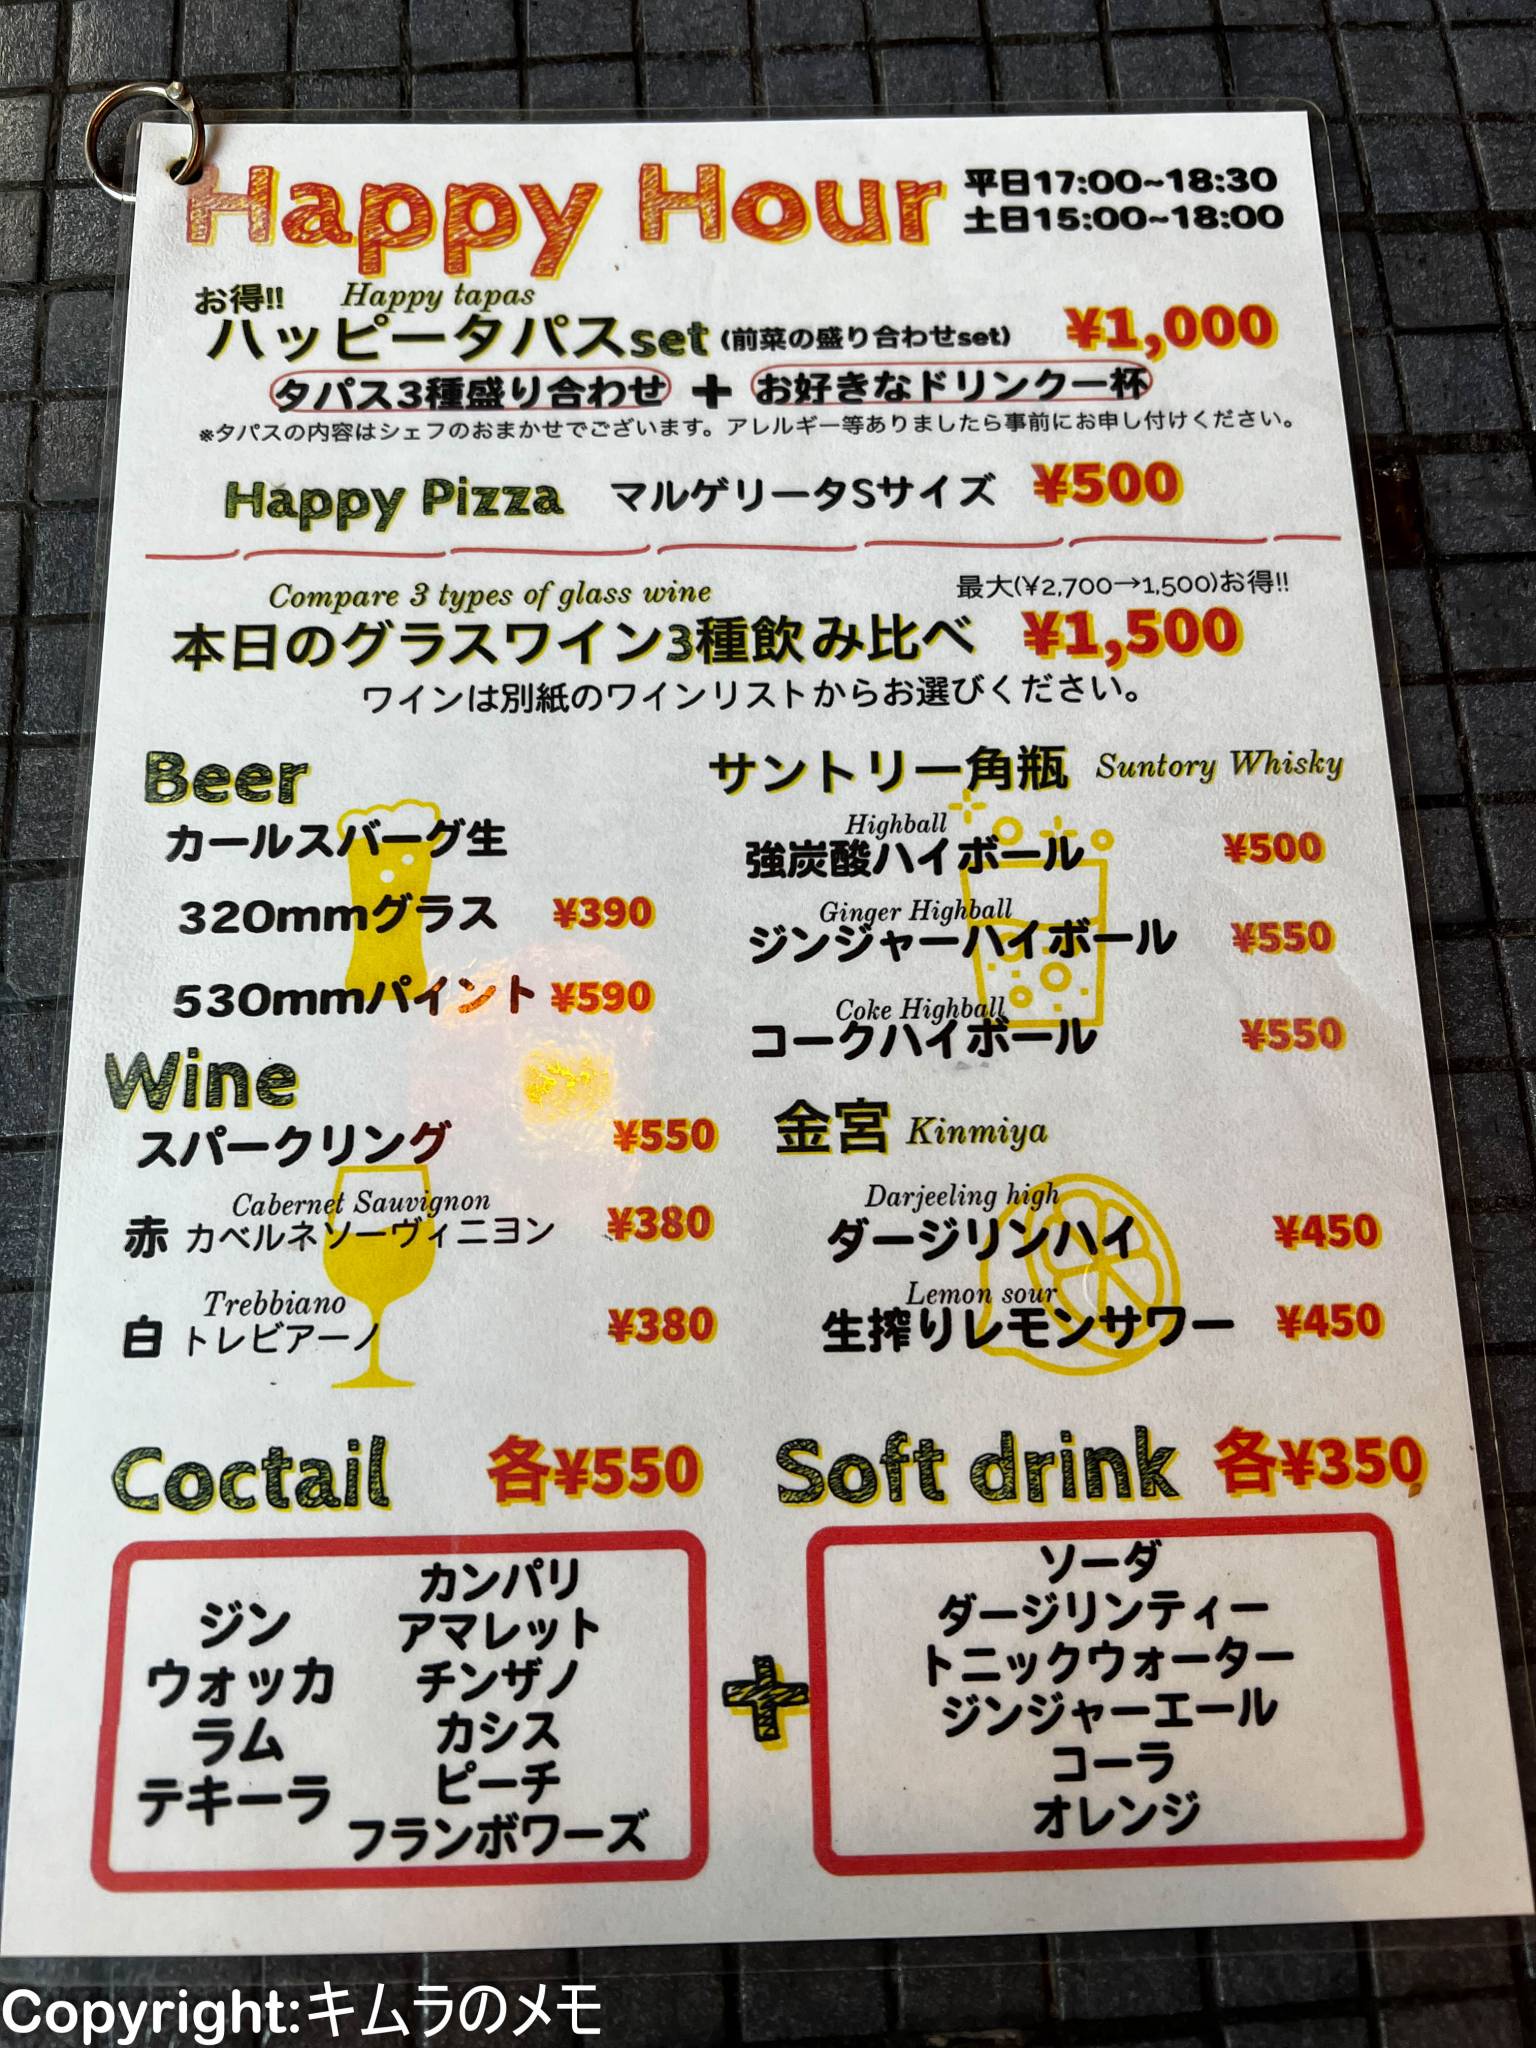 Happy Hour
平日17:00~18:30
土日15:00~18:00
お得!! Happy tapas
ハッピータパスset (前菜の盛り合わせset) ¥1,000
タパス3種盛り合わせ + お好きなドリンク一杯
※タパスの内容はシェフのおまかせでございます。アレルギー等ありましたら事前にお申し付けください。
Happy Pizza マルゲリータSサイズ ¥500
Compare 3 types of glass wine 最大(¥2,700→1,500)お得!!
本日のグラスワイン3種飲み比べ ¥1,500
ワインは別紙のワインリストからお選びください。
Beer
カールスバーグ生
320mmグラス ¥390
530mmパイント ¥590
Wine
スパークリング ¥550
Cabernet Sauvignon
赤 カベルネソーヴィニヨン ¥380
Trebbiano
白 トレビアーノ ¥380
サントリー角瓶 Suntory Whisky
Highball
強炭酸ハイボール ¥500
Ginger Highball
ジンジャーハイボール ¥550
Coke Highball
コークハイボール ¥550
金宮 Kinmiya
Darjeeling high
ダージリンハイ ¥450
Lemon sour
生搾りレモンサワー ¥450
Coctail 各¥550
ジン
ウォッカ
ラム
テキーラ
カンパリ
アマレット
チンザノ
カシス
ピーチ
フランボワーズ
+
Soft drink 各¥350
ソーダ
ダージリンティー
トニックウォーター
ジンジャーエール
コーラ
オレンジ
Copyright:キムラのメモ